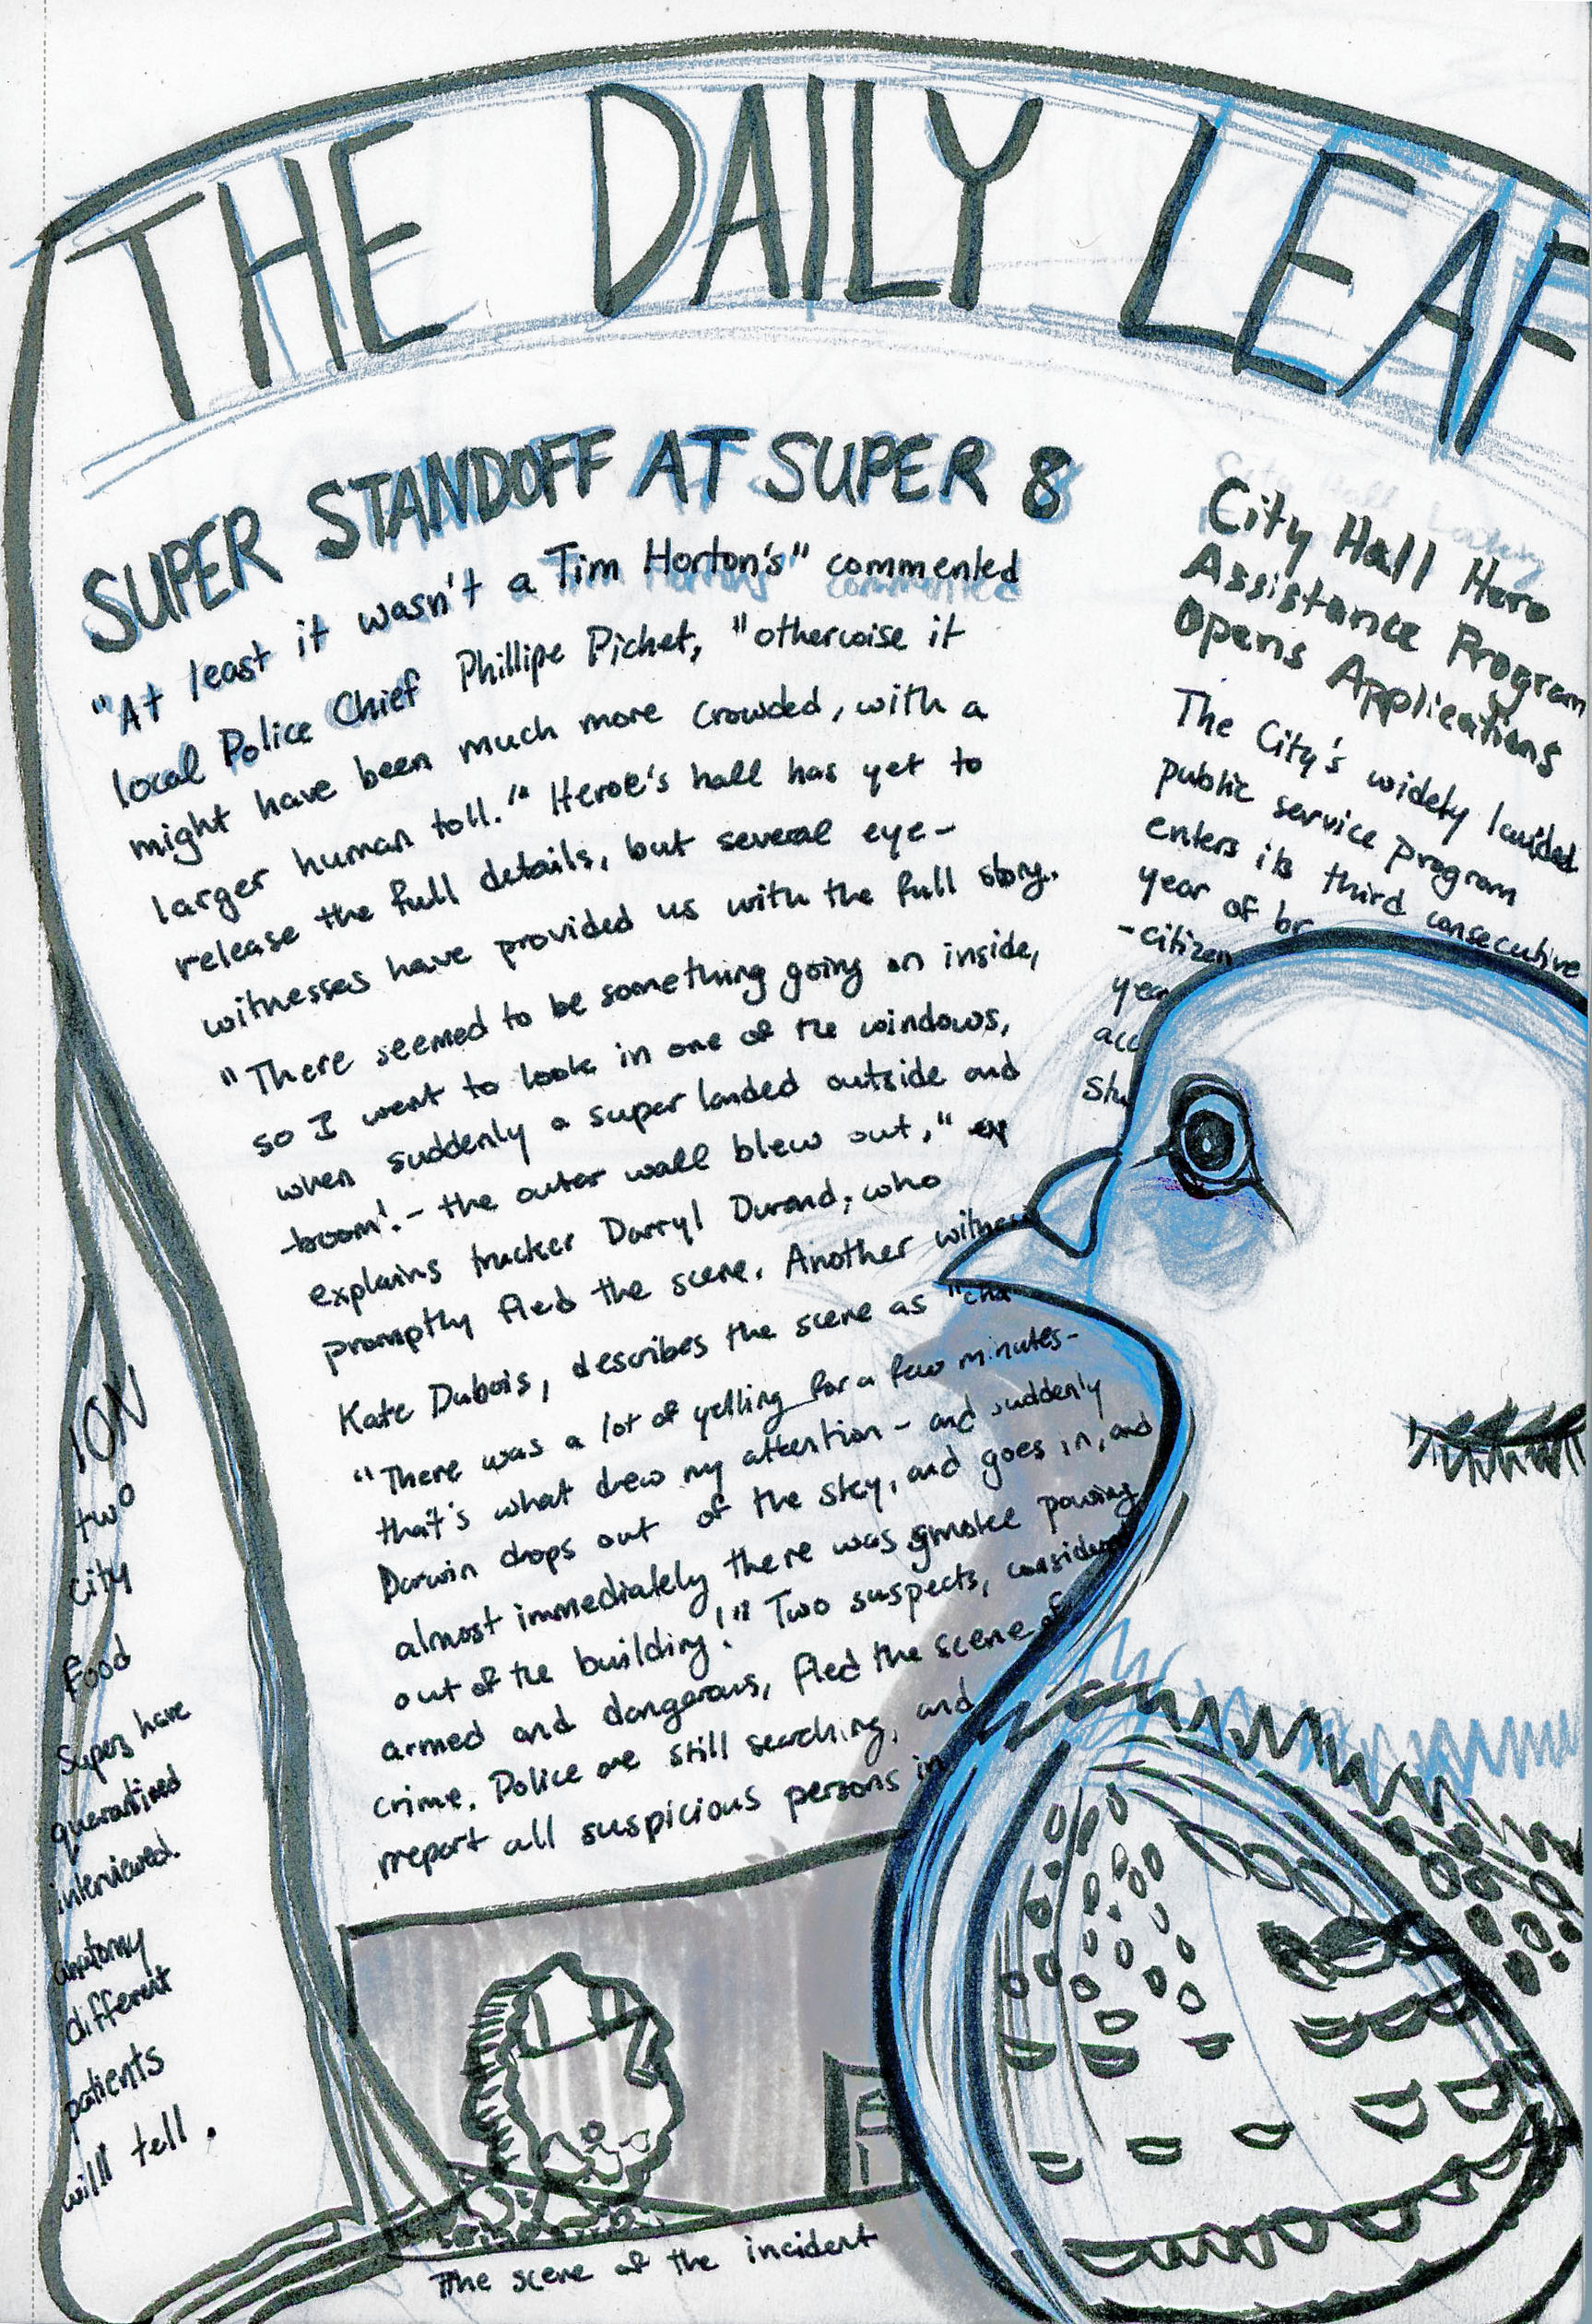 THE DAILY LEAF
SUPER STANDOFF AT SUPER 8
"At least it wasn't a Tim Horton's" commented
local Police Chief Phillipe Pichet, "otherwise it
might have been much more crowded, with a
larger human toll." Heroe's hall has yet to
release the full details, but several eye-
witnesses have provided us with the full story.
"There seemed to be something going on inside,
so I went to look in one of the windows,
when suddenly a super landed outside and
-boom!- the outer wall blew out,"
explains trucker Darryl Durand, who
promptly fled the scene. Another witness
Kate Dubois, describes the scene as "cha
"There was a lot of yelling for a few minutes-
that's what drew my attention - and suddenly
Darwin drops out of the sky, and goes in, and
almost immediately there was smoke pouring
out of the building!" Two suspects, considered
armed and dangerous, fled the scene of
crime. Police are still searching, and
report all suspicious persons in
The scene of the incident
City Hall Hero
Assistance Program
Opens Applications
The City's widely lauded
public service program
enters its third consecutive
year of br
-citizen
yea
acc
Stu
ION
two
city
Food
Supers have
quarantined
interviewed.
anatomy
different
patients
will tell.